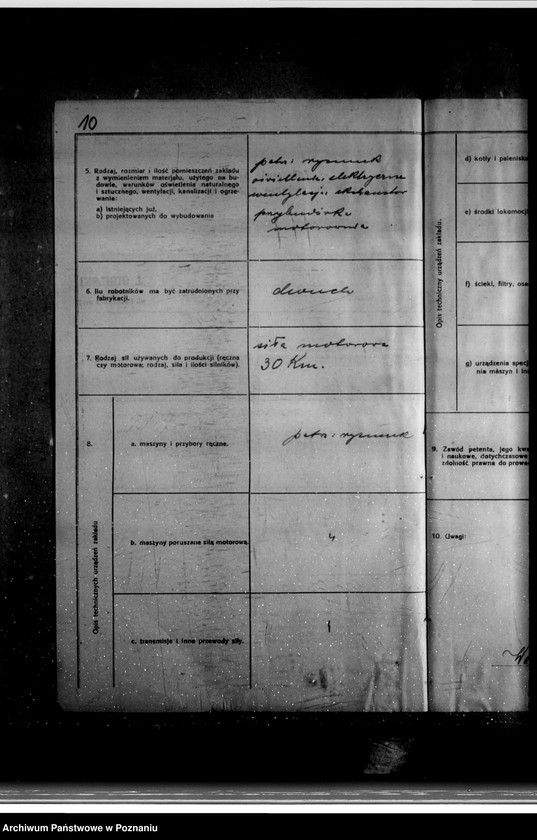 10
5. Rodzaj, rozmiar i ilość pomieszczeń zakładu
z wymienieniem materjału, użytego na bu-
dowle, warunków oświetlenia naturalnego
i sztucznego, wentylacji, kanalizacji i ogrze-
wania:
a) istniejących już,
b) projektowanych do wybudowania
patrz rysunek
oświetlenie elektryczne
wentylacja ekshaustor
przybudówka
motorownia
6. Ilu robotników ma być zatrudnionych przy
fabrykacji.
dwuch
7. Rodzaj sił używanych do produkcji (ręczna
czy motorowa; rodzaj, siła i ilości silników).
siła motorowa
30 Km.
8.
Opis technicznych urządzeń zakładu
a. maszyny i przybory ręczne.
patrz rysunek
b. maszyny poruszane siłą motorową.
c. transmisje i inne przewody siły.
Opis techniczny urządzeń zakładu.
d) kotły i palenisk
e) środki lokomocji
f) ścieki, filtry, osa
g) urządzenia specj
nia maszyn i in
9. Zawód petenta, jego kwa
i naukowe, dotychczasowe
zdolność prawna do prowa
10. Uwagi:
Archiwum Państwowe w Poznaniu